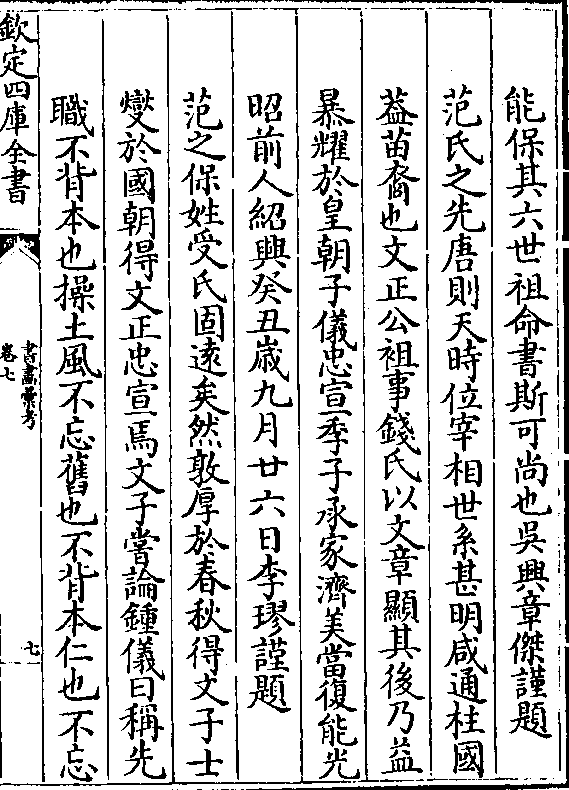 能保其六世祖命書斯可尚也吳興章傑謹題
范氏之先唐則天時位宰相世系甚明咸通柱國
葢苗裔也文正公祖事錢氏以文章顯其後乃益
暴耀於皇朝子儀忠宣季子承家濟美當復能光
昭前人紹興癸丑歲九月廿六日李璆謹題
范之保姓受氏固遠矣然敦厚於春秋得文子士
燮於國朝得文正忠宣焉文子嘗論鍾儀曰稱先
職不背本也操土風不忘舊也不背本仁也不忘
欽定四庫全書
書畫彙考
卷七
七